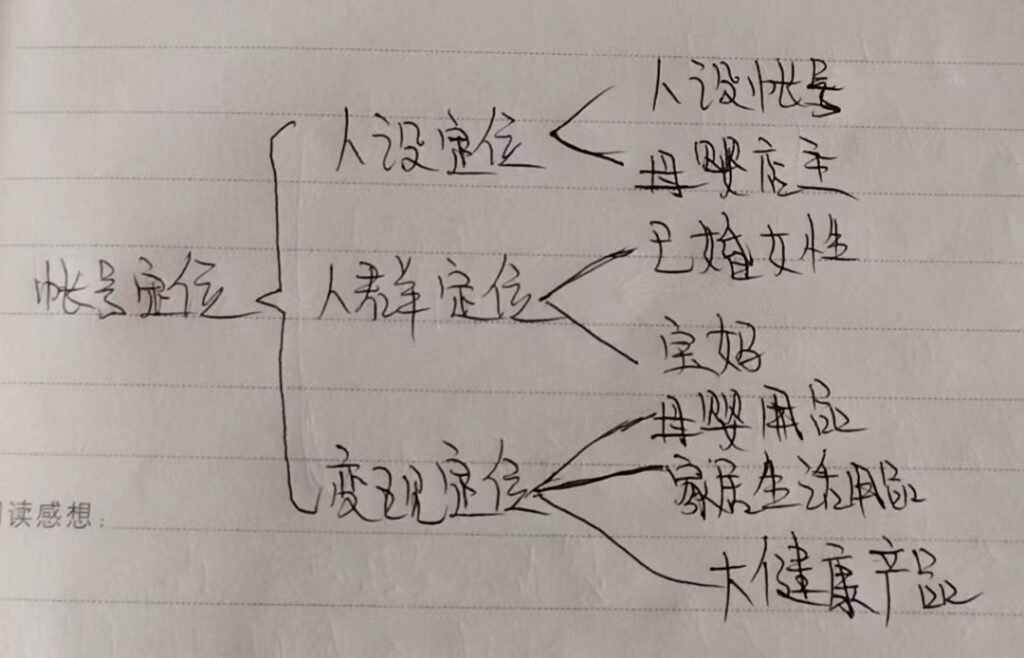 人设帐号
人设定位
母婴店主
已婚女性
帐号定位
人群定位
宝妈
母婴用品
变现定位
家居生活用品
阅读感想：
大健康产品